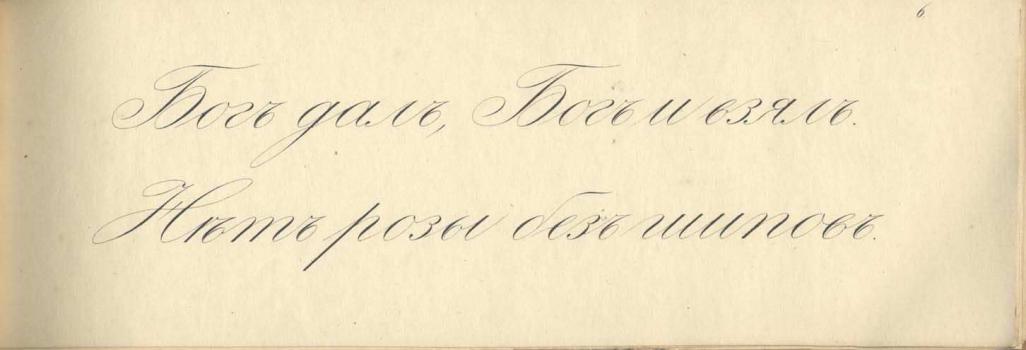 6
Богъ далъ, Богъ и взялъ.
Нѣтъ розы безъ шиповъ.